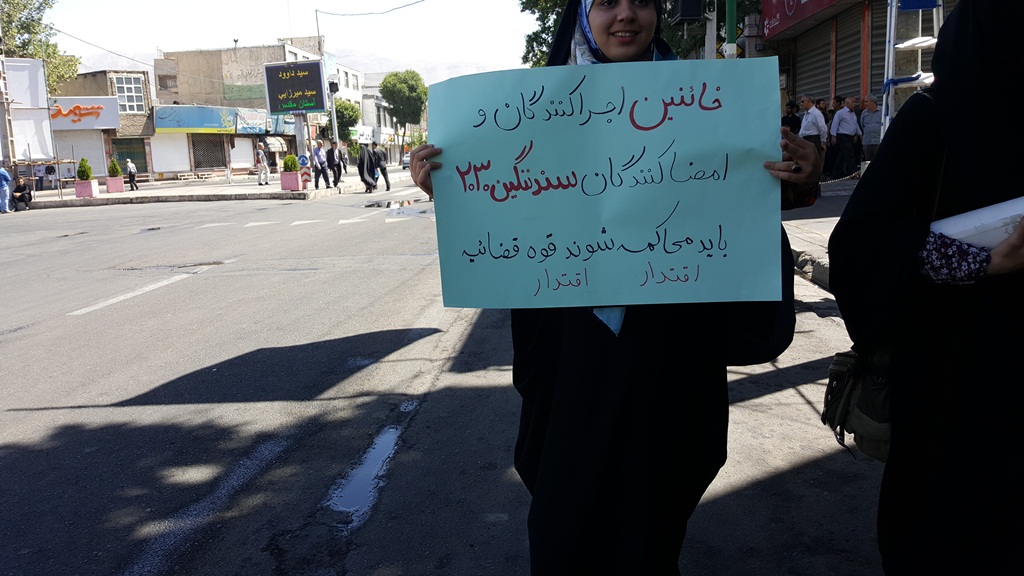 خائنین اجراکنندگان و
امضاکنندگان سند ننگین ۲۰۳۰
باید محاکمه شوند قوه قضائیه
اقتدار اقتدار
سید داوود
سید میرزایی
آستان مقدس